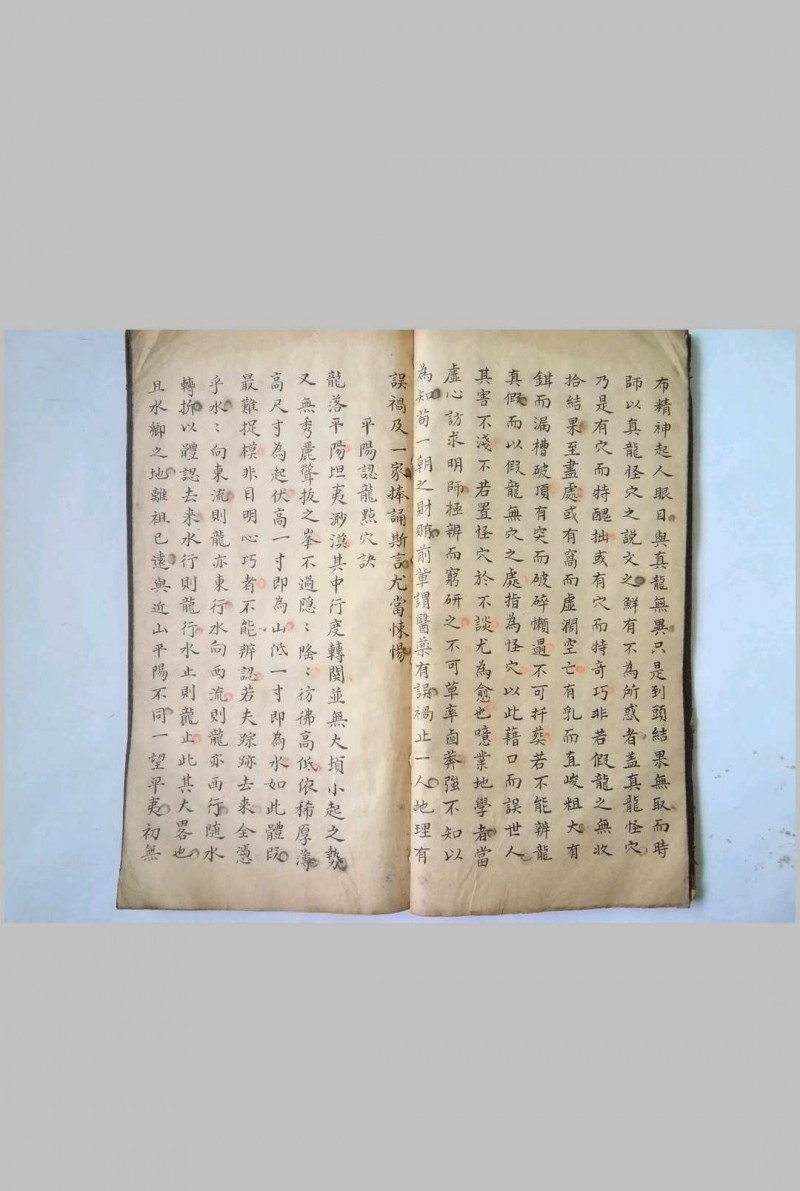 布精神起人眼目與真龍無異只是到頭結果無取而時
師以真龍怪穴之説文之鮮有不為所惑者盖真龍怪穴
乃是有穴而特醜拙或有穴而特奇巧非若假龍之無收
拾結果至盡處或有窩而虛濶空亡有乳而直峻粗大有
鉗而漏槽破頂有突而破碎懶過不可扦葬若不能辨龍
真假而以假龍無穴之處指為怪穴以此藉口而誤世人
其害不淺不若置怪穴於不談尤為愈也噫業地學者當
虛心訪求明師極辨而窮研之不可草率鹵莽強不知以
為知苟一朝之財賄前輩謂醫藥有誤禍止一人地理有
誤禍及一家捧誦斯言尤當悚惕
平陽認龍㸃穴訣
龍落平陽坦夷渺漠其中行度轉関並無大頓小起之勢
又無秀麗聳拔之峯不過隐〻隆〻彷彿高低依稀厚薄
高尺寸為起伏高一寸即為山低一寸即為水如此體段
最難捉模非目明心巧者不能辨認若夫踪跡去來全憑
乎水〻向東流則龍亦東行水向西流則龍亦西行随水
轉折以體認去来水行則龍行水止則龍止此其大畧也
且水鄉之地離祖已遠與近山平陽不同一望平夷初無